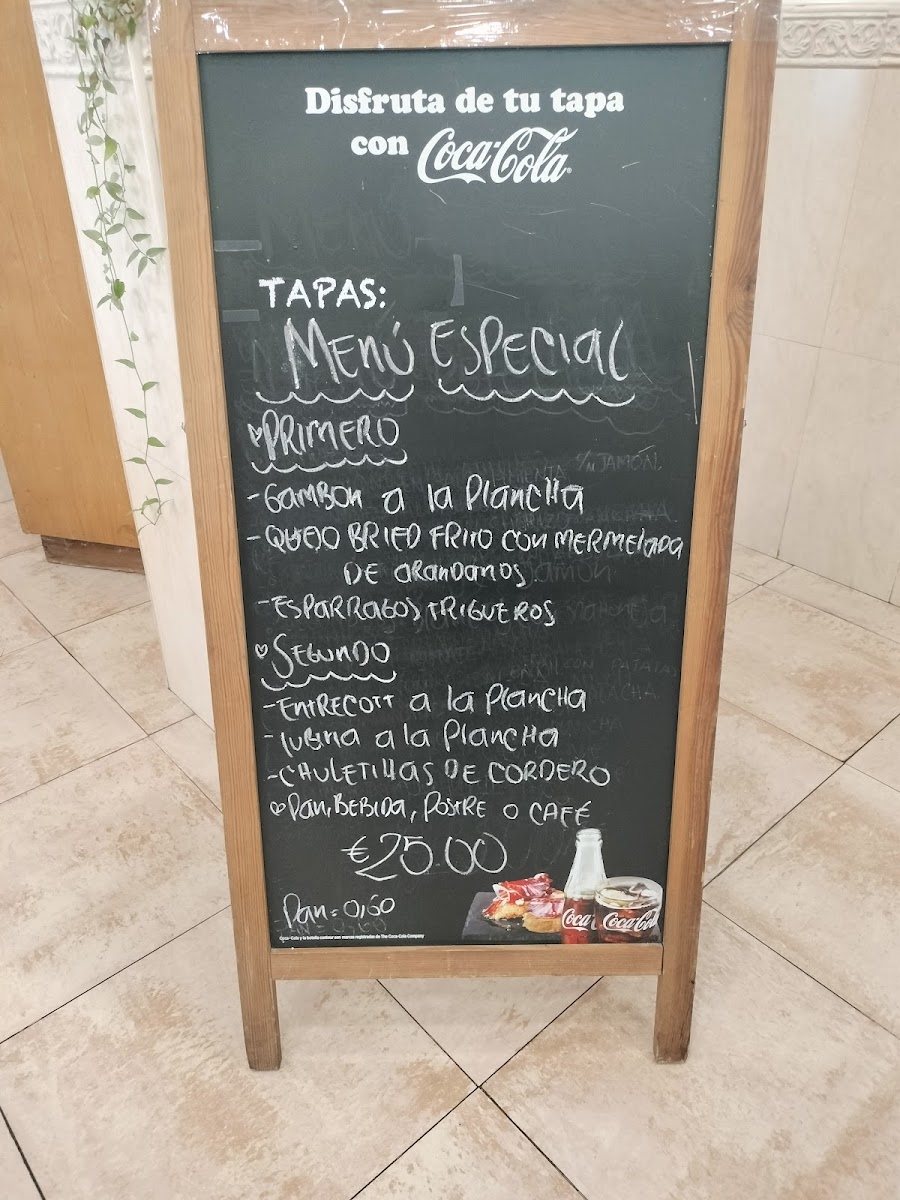 Disfruta de tu tapa
con Coca-Cola
TAPAS:
MENÚ ESPECIAL
PRIMERO
S/N JAMÓN.
- GAMBON a la PlancHa
- QUESO BRIED FRITO CON MERMELADA
DE ARANDANOS.
- ESPARRAGOS TRIGUEROS
SEGUNDO
- ENTRECOTT a la PlancHa
- LUBINA a la PlancHa
- CHULETILLAS DE CORDERO
Pan, BEBIDA, POSTRE O CAFÉ
€25.00
Pan = 0,60
Coca-Cola y la botella contour son marcas registradas de The Coca-Cola Company
Coca-Cola